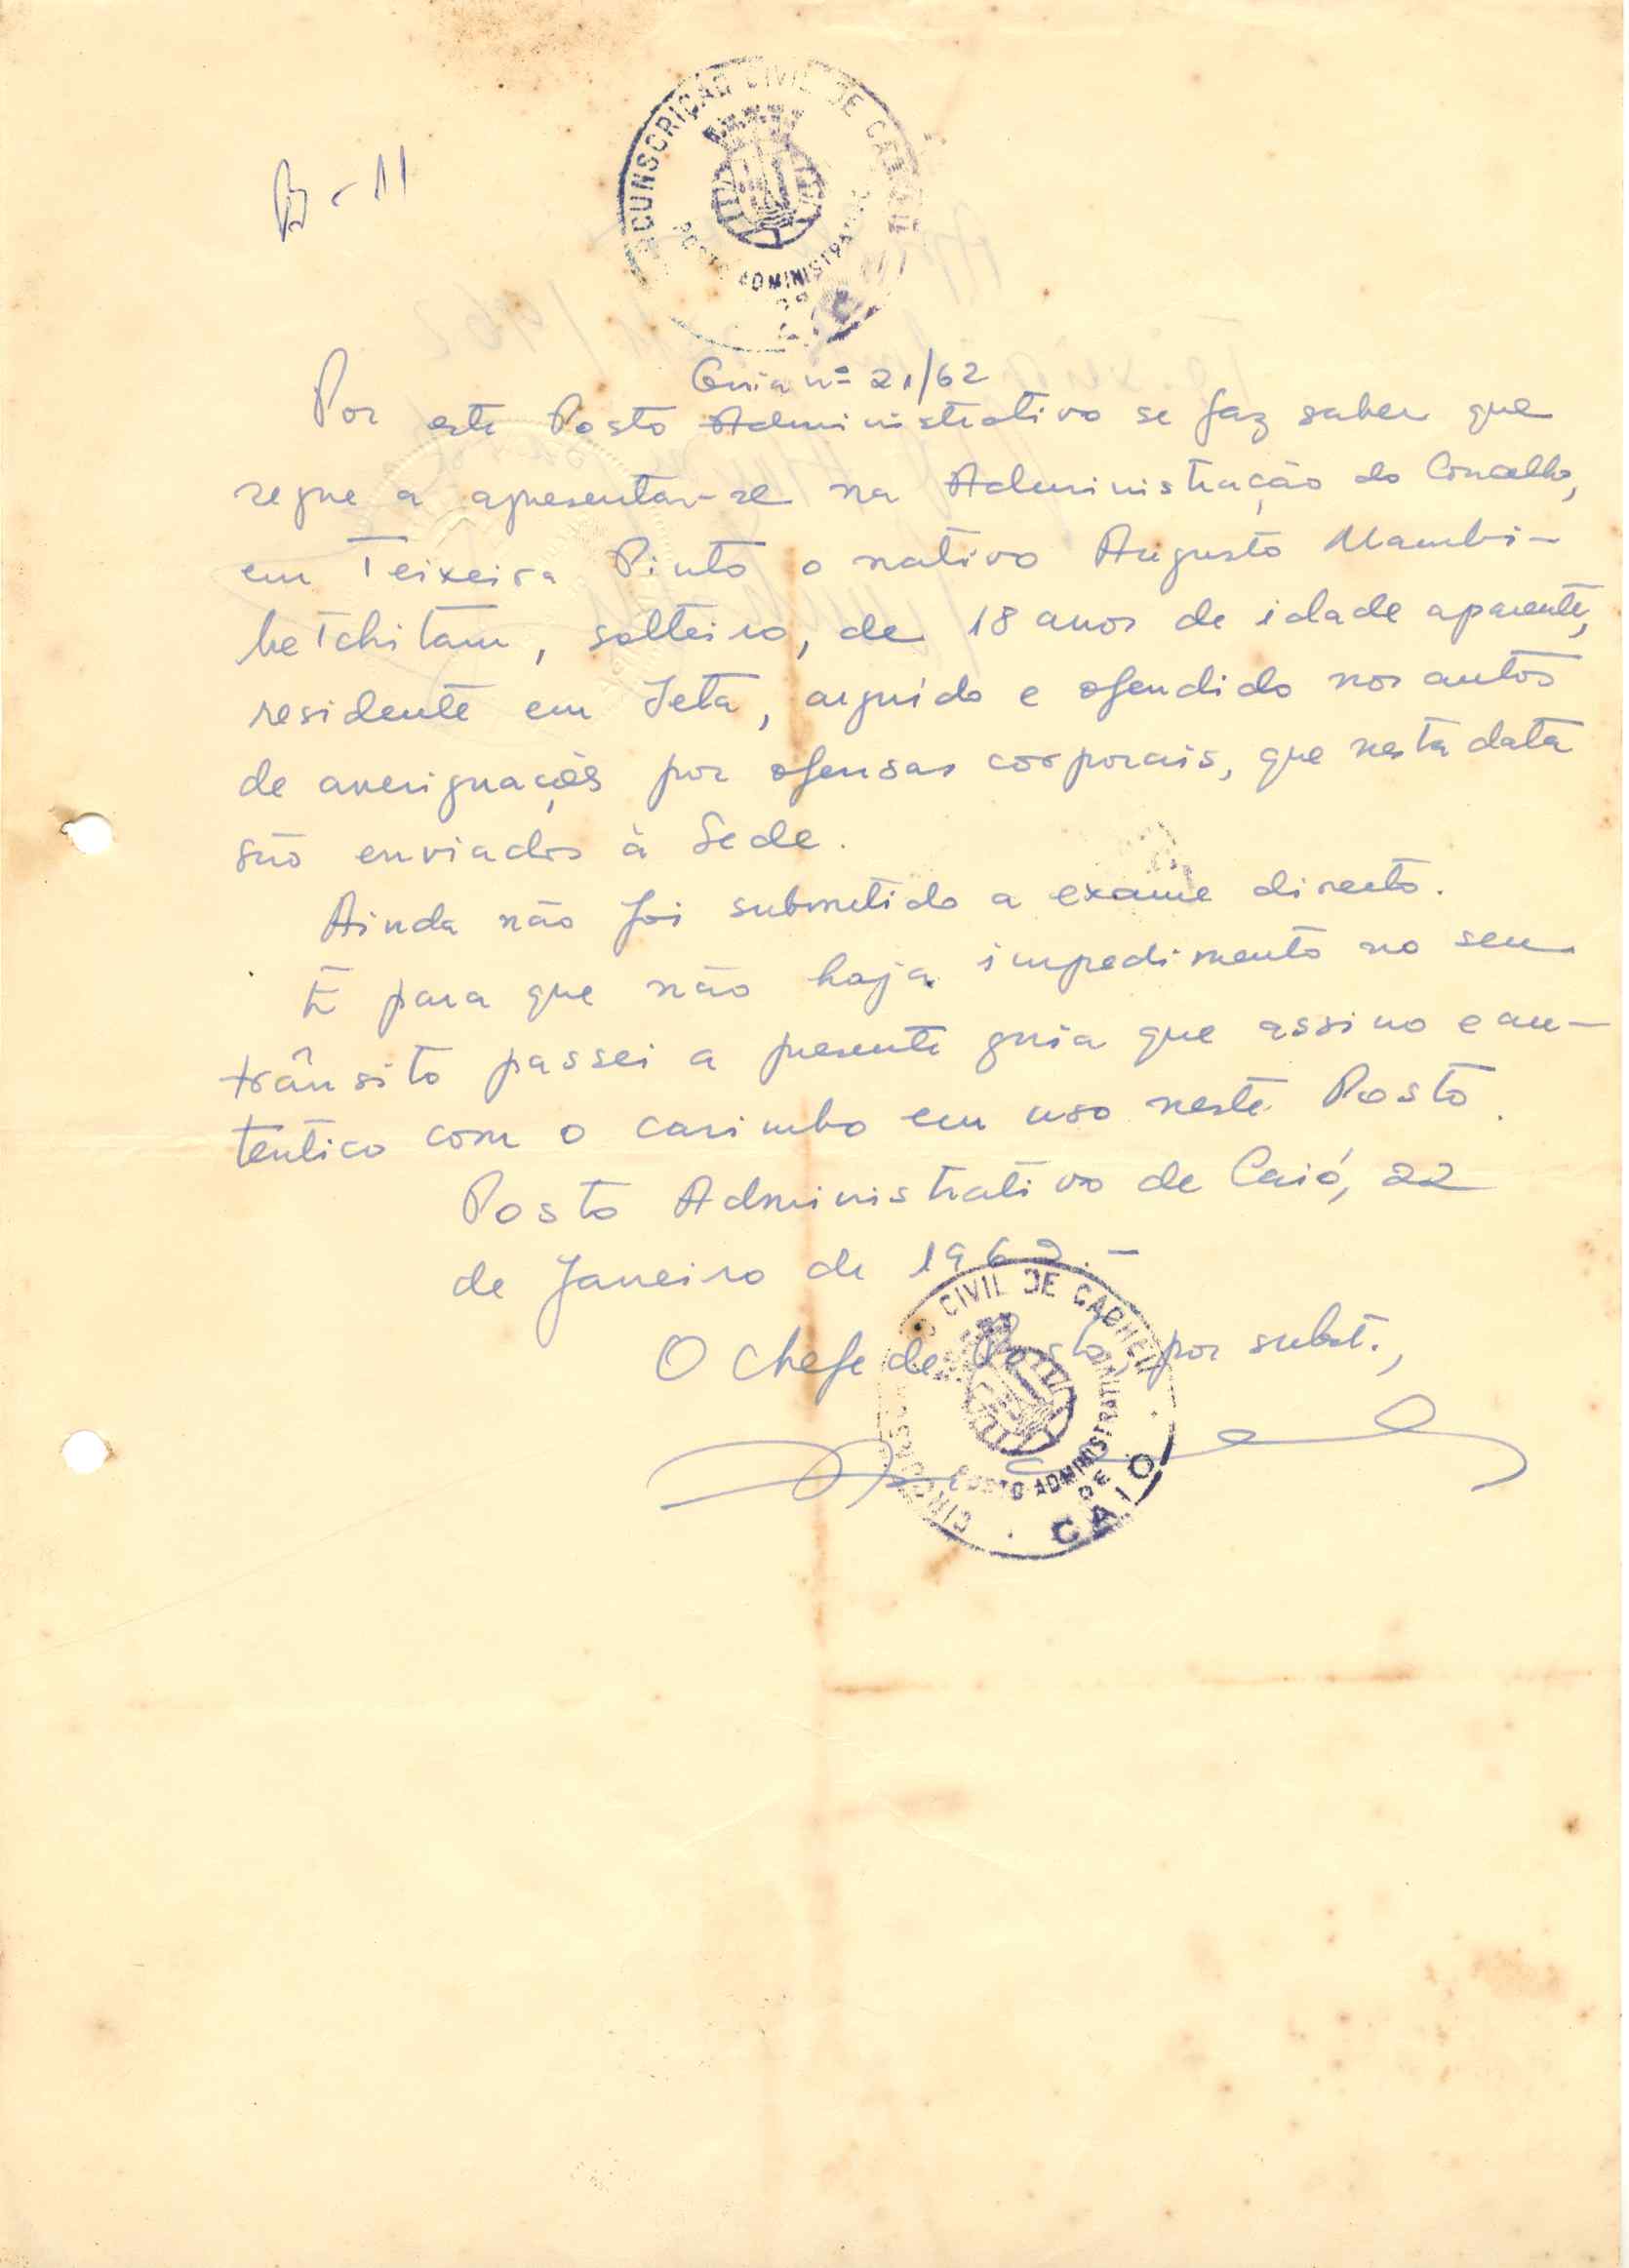 B - 11
CIRCUNSCRIÇÃO CIVIL DE CACHEU
POSTO ADMINISTRATIVO
DE
Guia nº 21/62
Por este Posto Administrativo se faz saber que
segue a apresentar-se na Administração do Concelho,
em Teixeira Pinto o nativo Augusto Mambi-
be Tchitam, solteiro, de 18 anos de idade aparente,
residente em Jeta, arguido e ofendido nos autos
de averiguações por ofensas corporais, que nesta data
são enviados à Sede.
Ainda não foi submetido a exame directo.
E para que não haja impedimento no seu
trânsito passei a presente guia que assino e au-
tentico com o carimbo em uso neste Posto.
Posto Administrativo de Caió, 22
de Janeiro de 1962.-
O Chefe de Posto, por subst.,
CIRCUNSCRIÇÃO CIVIL DE CACHEU
POSTO ADMINISTRATIVO
DE
CAIO